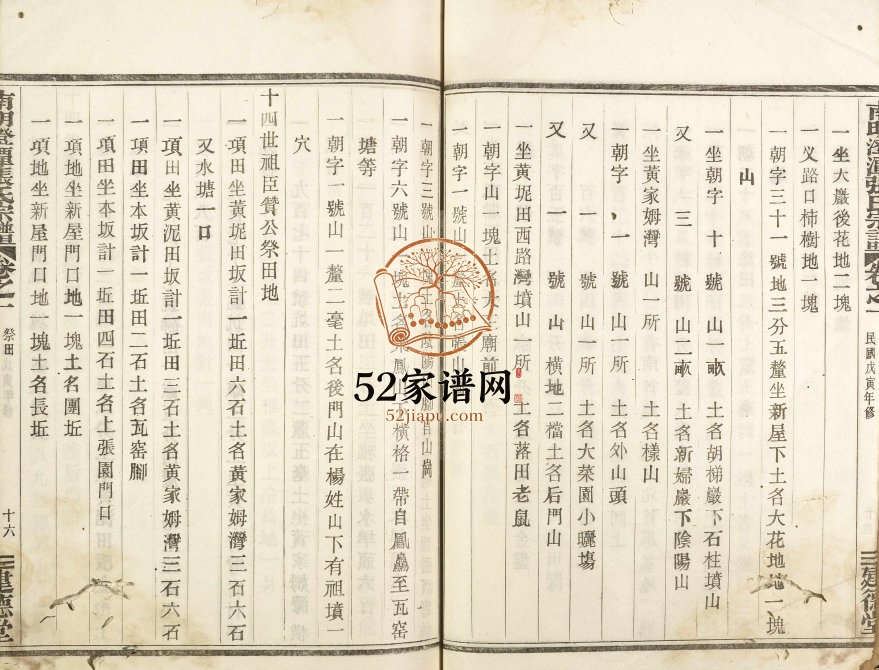 一坐大巖後花地二塊
一义路口柿樹地一塊
一朝字三十一號地三分五釐坐新屋下土名大花地地一塊
山
一坐朝字 十 號 山一畝 土名胡梯巖下石柱墳山
又 三 號 山二畝 土名新婦巖下陰陽山
一坐黃家姆灣 山一所 土名樣山
一朝字 一 號 山一所 土名外山頭
又 一 號 山一所 土名大菜園小曬塲
又 一 號 山 橫地二檔土名后門山
一坐黃坭田西路灣墳山一所 土名落田老鼠
一朝字山一塊土名大王廟前
一朝字一號山
一朝字三號山
一朝字六號山 塊土名 鳳 橫格一帶自鳳 至瓦窑
塘等
一朝字一號山一釐二毫土名後門山在楊姓山下有祖墳一
穴
十四世祖臣贊公祭田地
一項田坐黃坭田坂計一坵田六石土名黃家姆灣三石六石
又水塘一口
一項田坐黃泥田坂計一坵田三石土名黃家姆灣三石六石
一項田坐本坂計一坵田二石土名瓦窑腳
一項田坐本坂計一坵田四石土名上張園門口
一項地坐新屋門口地一塊土名團坵
一項地坐新屋門口地一塊土名長坵
南明澄潭張氏宗譜 卷之一 祭田 戊寅年修 十六 建德堂
民國戊寅年修
52家谱网
52jiapu.com